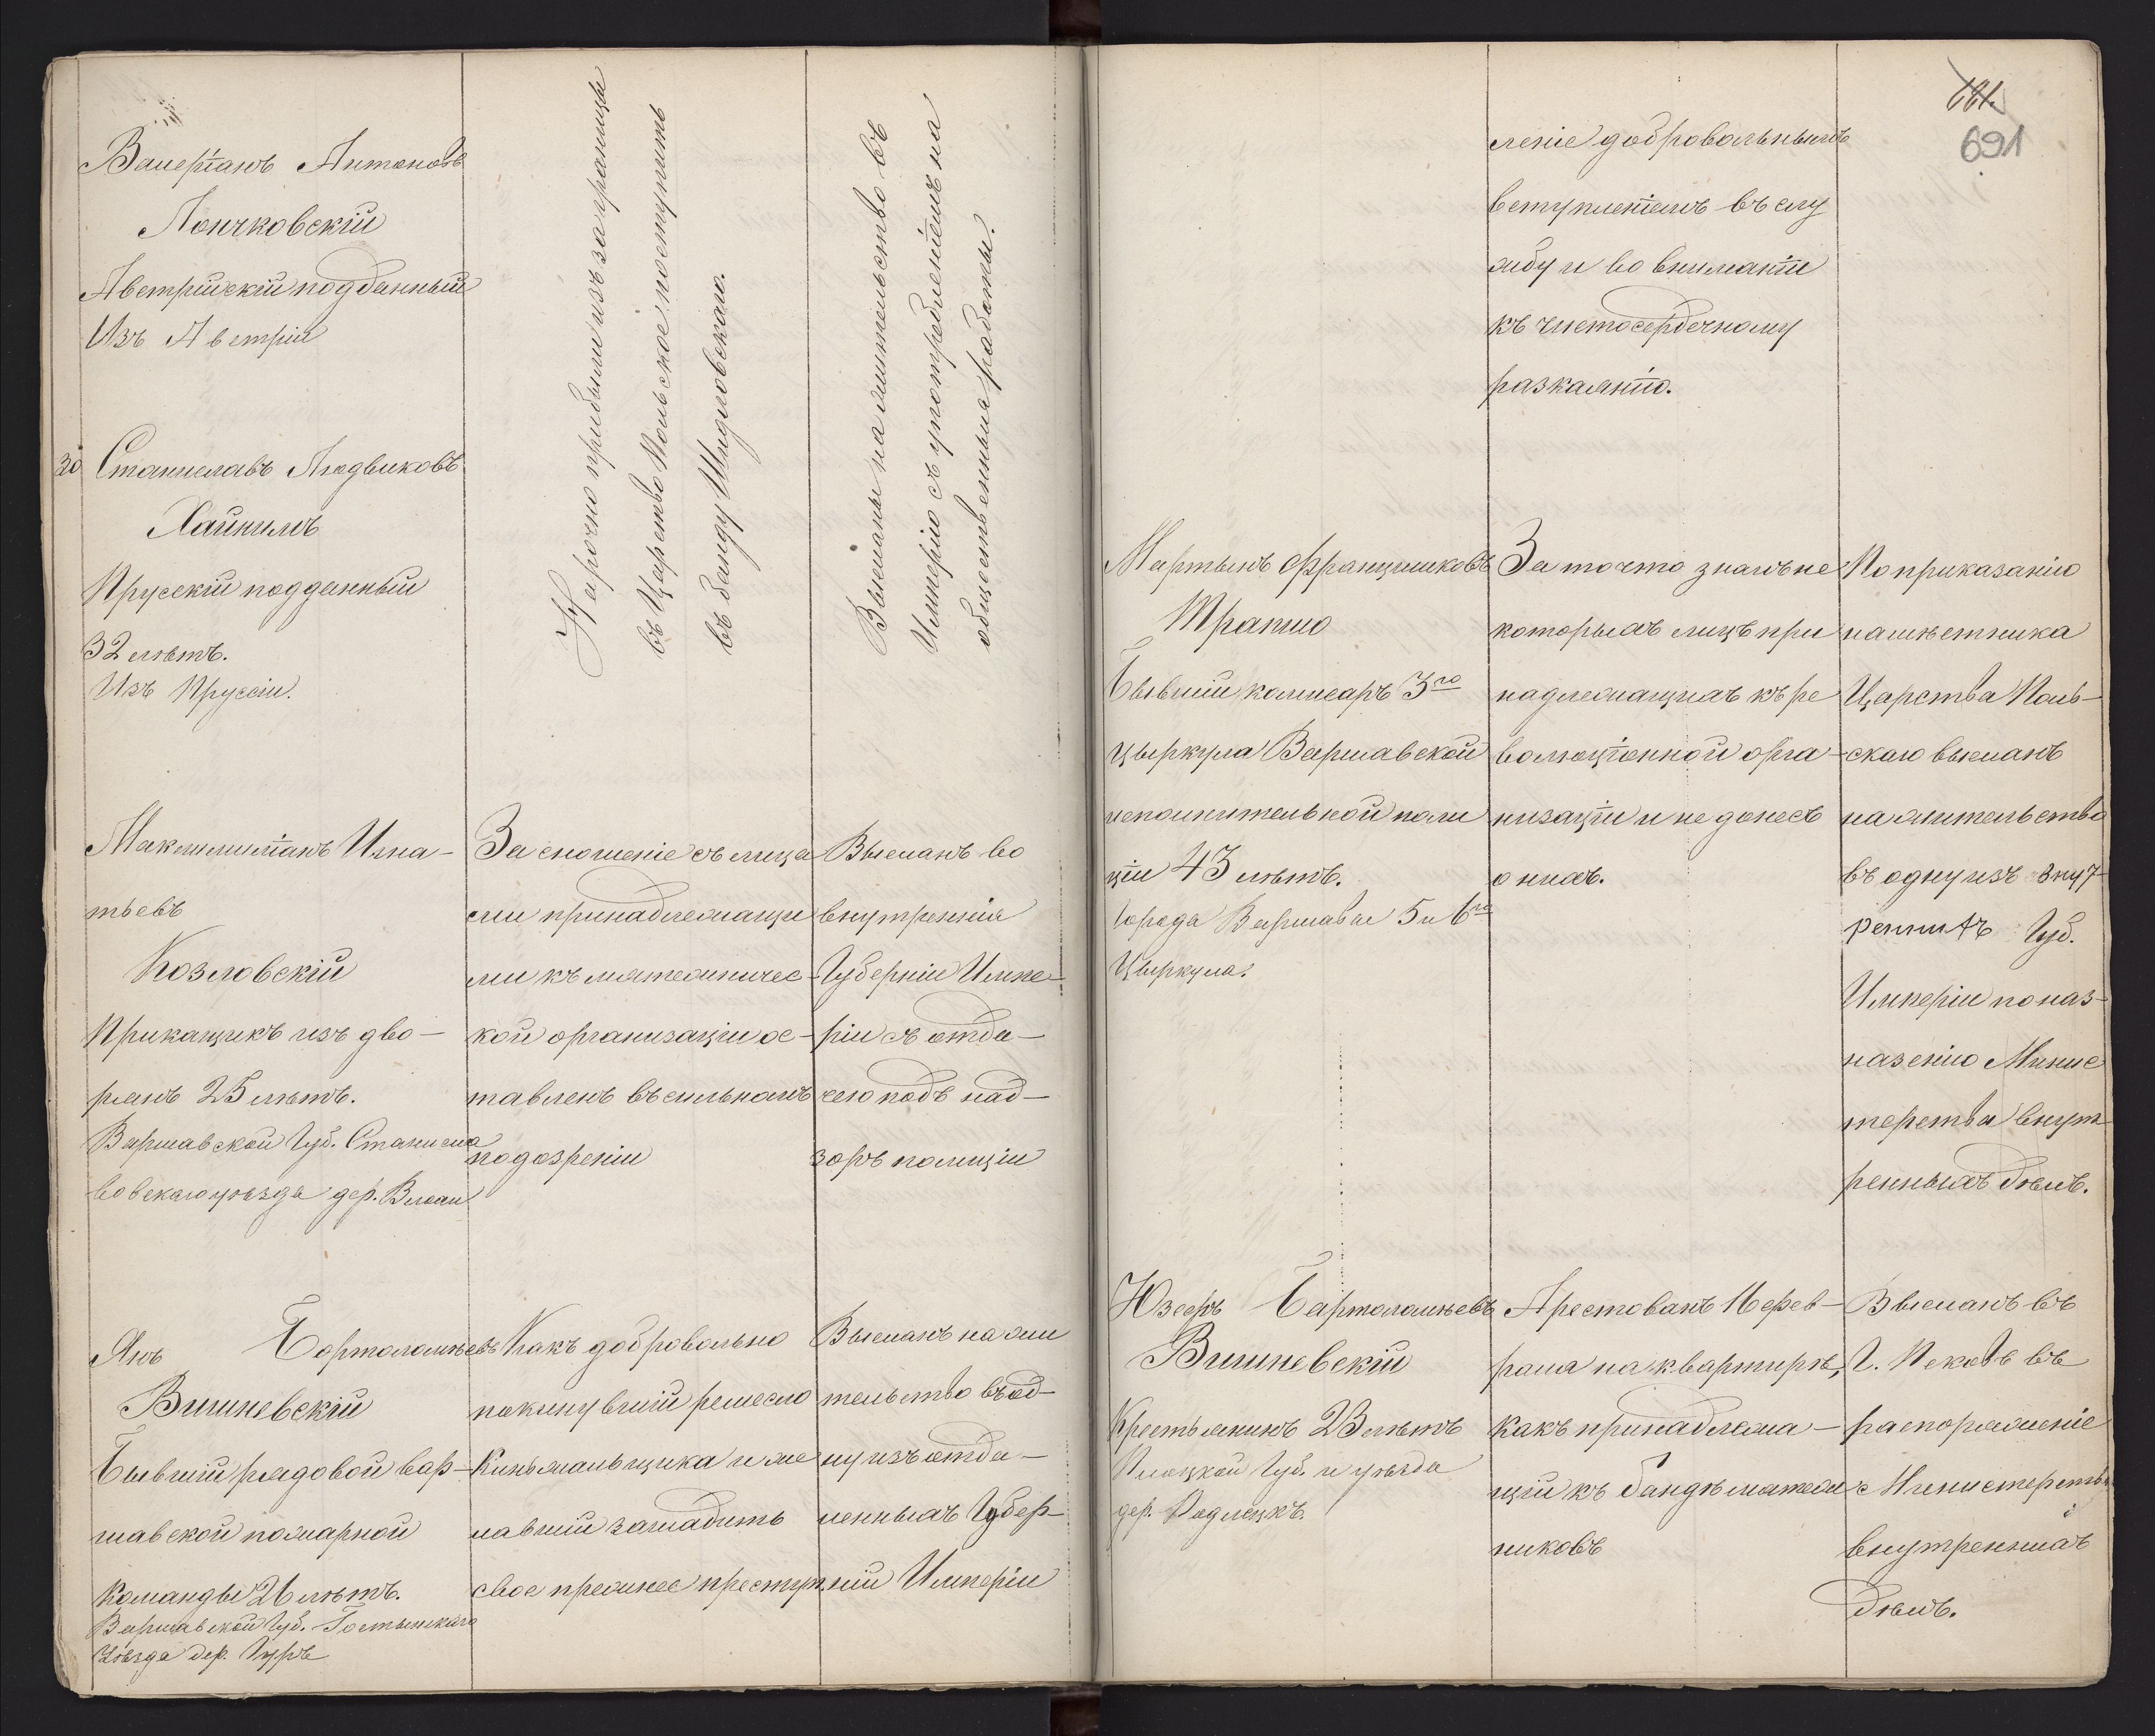 Валеріанъ Антоновъ
Лончковскій
Австрійскій подданный
Изъ Австріи
Нарочно прибыли изъ заграницы
въ Царство Польское поступить
въ банду Шидловскаго.
Высланы на жительство въ
Имперію съ употребленіемъ на
общественныя работы.
30 Станиславъ Людвиковъ
Хайнилъ
Прусскій подданный
32 лѣтъ.
Изъ Пруссіи.
Максимиліанъ Игна-
тьевъ
Козловскій
Прикащикъ изъ дво-
рянъ 25 лѣтъ.
Варшавской Губ. Станисла
вовскаго уѣзда дер.
За сношеніе съ лица
ми принадлежащи
ми къ мятежничес-
кой организаціи ос-
тавленъ въ сильномъ
подозреніи
Высланъ во
внутреннія
Губерніи Импе-
ріи съ отда-
чею подъ над-
зоръ полиціи
Янъ Бортоломѣевъ
Вишневскій
Бывшій рядовой вар-
шавской пожарной
команды 26 лѣтъ.
Варшавской Губ. Гостынскаго
Уѣзда дер. Гуръ
Какъ добровольно
покинувшій ремесло
Кинжальщика и же
лавшій загладить
свое прежнее преступ
Высланъ на жи
тельство въ од-
ну изъ отда-
ленныхъ Губер-
ній Имперіи
681.
691
леніе добровольнымъ
вступленіемъ въ слу
жбу и во вниманіи
къ чистосердечному
разкаянію.
Мартынъ Францишковъ
Трашко
Бывшій комисаръ 3го
цыркула Варшавской
исполнительной поли
ціи 43 лѣтъ.
Города Варшавы 5 и 6го
Цыркула.
За то что зналъ не
которыхъ лицъ при
надлежащихъ къ ре
волюціонной орга-
низаціи и не донесъ
о нихъ.
По приказанію
намѣстника
Царства Поль-
скаго высланъ
на жительство
въ одну изъ внут-
реннихъ Губ.
Имперіи по наз-
наченію Минис
терства внут
ренныхъ дѣлъ.
Юзефъ Бартоломѣевъ
Вишневскій
Крестьянинъ 23 лѣтъ
Плоцкой Губ. и уѣзда
дер. Радлецкъ.
Арестованъ 1 Фев-
раля на квартирѣ,
какъ принадлежа-
щій къ бандѣ мятеж
никовъ
Высланъ въ
Г. Псковъ въ
распоряженіе
Министерства
внутреннихъ
дѣлъ.